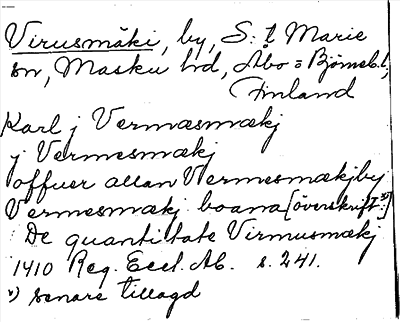 Virusmäki, by, S:t Marie
sn, Masku hd, Åbo = Björneb. l,
Finland
Karl j Vermæsmækj
j Vermesmækj
offuer allan Vermesmækj by
Vermesmækj boana [överskrift: *)]
De quantitate Virmusmækj
1410 Reg. Eccl. Ab. s. 241.
*) senare tillagd